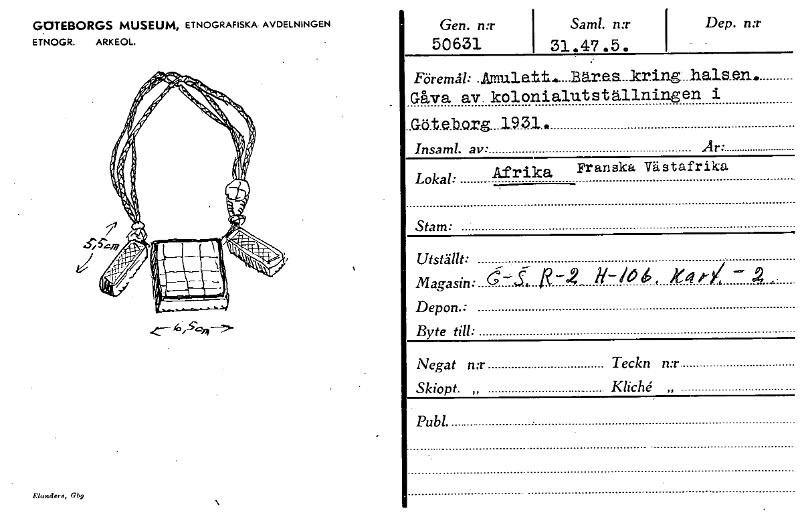 GÖTEBORGS MUSEUM, ETNOGRAFISKA AVDELNINGEN
ETNOGR. ARKEOL.
5,5cm
6,5cm
Elanders, Gbg
Gen. n:r Saml. n:r Dep. n:r
50631 31.47.5.
Föremål: Amulett. Bäres kring halsen.
Gåva av kolonialutställningen i
Göteborg 1931.
Insaml. av: År:
Lokal: Afrika Franska Västafrika
Stam:
Utställt:
Magasin: G-S. R-2 H-106. Kart. - 2.
Depon.:
Byte till:
Negat n:r Teckn n:r
Skiopt. „ Kliché „
Publ.